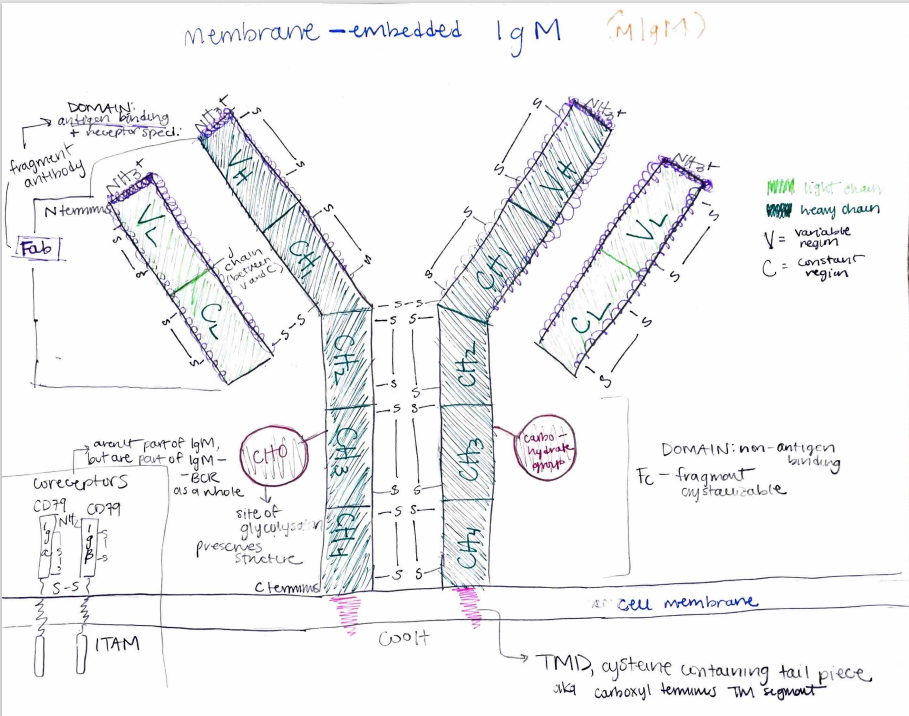 membrane-embedded IgM (mIgM)
DOMAIN:
antigen binding
+ receptor speci.
fragment
antibody
Fab
N terminus
NH3+
VL
CL
NH3+
VH
CH1
J
chain
(between
V and C)
NH3+
VH
CH1
NH3+
VL
CL
light chain
heavy chain
V = variable
region
C = constant
region
S-S
S-S
S-S
CH2
CH3
CH4
CH2
CH3
CH4
CHO
site of
preserves
structure
carbo-
hydrate
groups
DOMAIN: non-antigen
binding
Fc - fragment
crystallizable
aren't part of IgM,
but are part of IgM-
-BCR
as a whole
coreceptors
CD79 CD79
Igα
NH2
Igβ
S-S
ITAM
C terminus
cell membrane
COOH
TMD, cysteine containing tail piece
aka carboxyl terminus TM segment